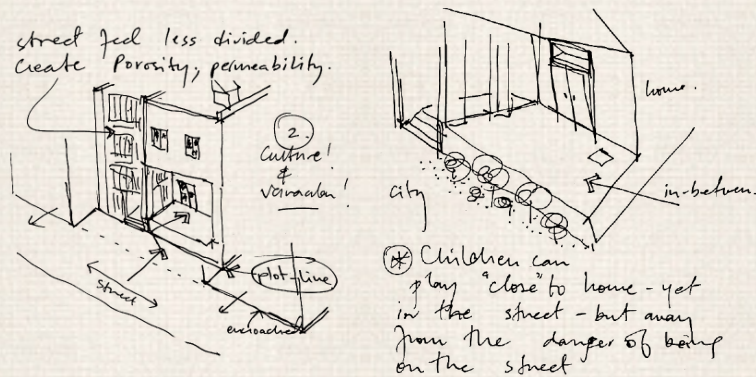 street feel less divided.
Create Porosity, permeability.
2.
Culture!
&
vernacular!
street
plot-line
encroached
home.
city
in-between.
* Children can
play "close" to home - yet
in the street - but away
from the danger of being
on the street